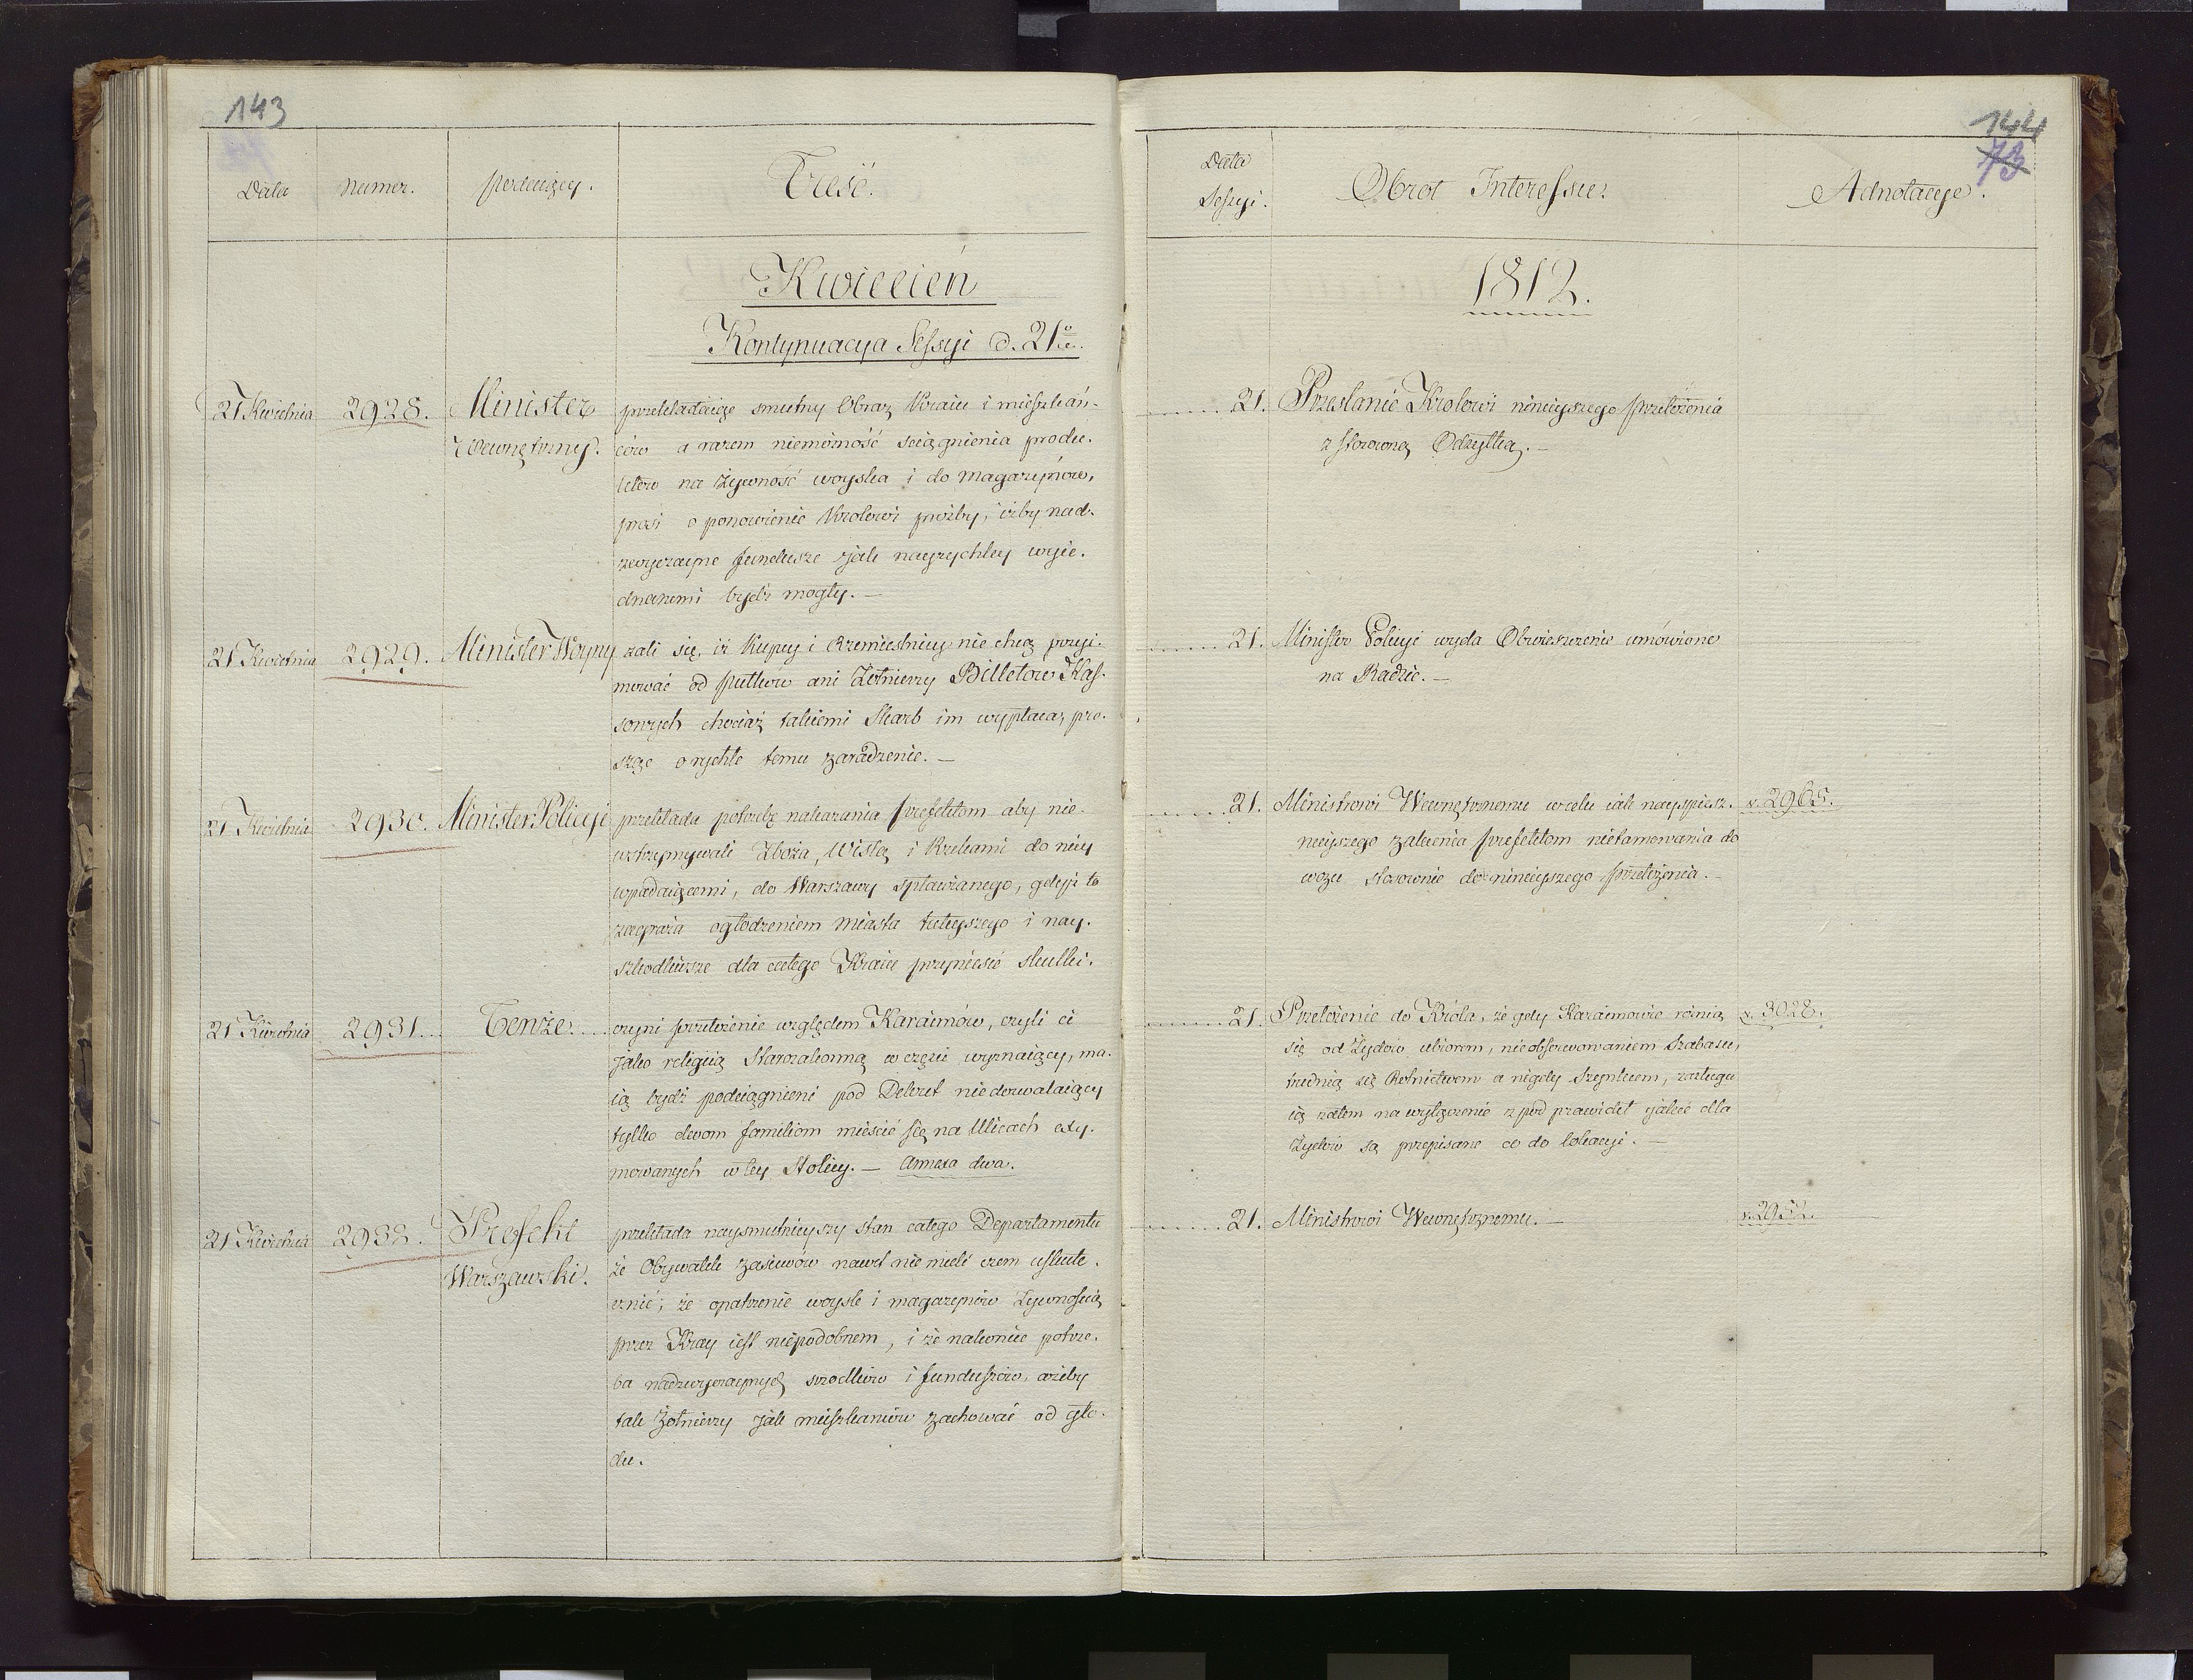 143
Data
numer.
podaiący.
Treść.
Kwiecień
Kontynuacya Sessyi d. 21º
21 Kwietnia
2928.
Minister
Wewnętrzny.
przekładaiąc smutny Obraz Kraiu i mieszkań-
ców a razem niemożność sciągnienia produ-
któw na żywność woyska i do magazynów,
prosi o ponowienie Krolowi prożby, iżby nad-
zwyczayne fundusze jak nayrychley wyie-
dnanemi bydź mogły. —
21 Kwietnia
2929.
Minister Woyny
żali się, iż Kupcy i Rzemieslnicy nie chcą przyi-
mować od pułków ani Żołnierzy Billetów Kas-
sowych chociaż takiemi Skarb im wypłaca, pro-
sząc o rychłe temu zaradzenie. —
21 Kwietnia
2930.
Minister Policyi
przekłada potrzebę nakazania prefektom aby nie-
wstrzymywali Zboża, Wisłą i Rzekami do niey
wpadaiącemi, do Warszawy spławianego, gdyż to
zagraża ogłodzeniem miasta tuteyszego i nay-
szkodliwsze dla całego Kraiu przynieść skutki.
21 Kwietnia
2931.
Tenże
czyni przełożenie względem Karaimów, czyli ci
jako religią Starozakonną w części wyznaiący, ma-
ią bydź podciągnieni pod Dekret niedozwalaiący
tylko dwom familiom mieścić się na Ulicach exy-
mowanych w tey Stolicy. — Annexa dwa.
21 Kwietnia
2932.
Prefekt
Warszawski.
przekłada naysmutnieyszy stan całego Departamentu
że Obywatele zasiewów nawet nie mieli czem uskute-
cznić; że opatrzenie woysk i magazynów Żywnością
przez Kray iest niepodobnem, i że nakoniec potrze-
ba nadzwyczaynych srodków i funduszów, ażeby
tak Żołnierzy jak mieszkańców zachować od gło-
du.
144
73
Data
Sessyi.
Obrot Interessu.
Adnotacye.
1812.
21. Przesłanie Krolowi ninieyszego przełożenia
z stosowną Odezwą. —
21. Minister Policyi wyda Obwieszczenie umówione
na Radzie. —
21. Ministrowi Wewnętrznemu w celu iak nayspiesz-
nieyszego zalecenia prefektom nietamowania do
wozu stosownie do ninieyszego przełożenia. —
v. 2965.
21. Przełożenie do Króla, że gdy Karaimowie różnią
się od Żydów ubiorem, nieobserwowaniem Szabasu,
trudnią się Rolnictwem a nigdy Szynkiem, zasługu
ią zatem na wyłączenie z pod prawideł jakie dla
Żydów są przepisane co do lokacyi. —
v. 3028.
21. Ministrowi Wewnętrznemu. —
v. 2952.